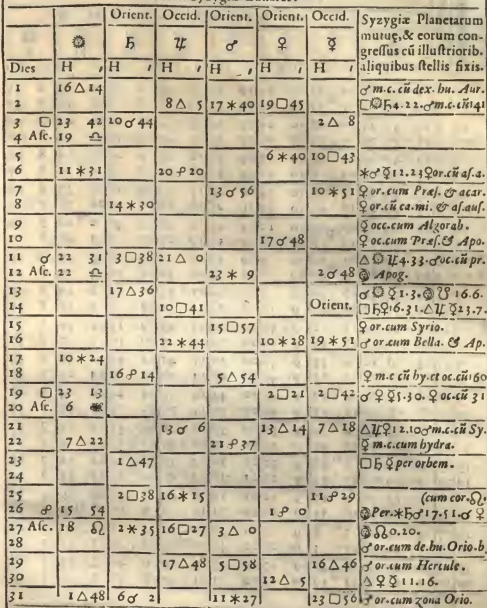 Orient. Occid. Orient. Orient. Occid. Syzygiæ Planetarum
☼ ♄ ♃ ♂ ♀ ☿ mutuę, & eorum con-
gressus cū illustriorib.
Dies H ′ H ′ H ′ H ′ H ′ H ′ aliquibus stellis fixis.
1 16△14 ♂ m.c. cū dex. hu. Aur.
2 8△ 5 17✶40 19□45 □☼♄4.22.♂m.c.cū141
3 □ 23 42 10☌44 2△ 8
4 Asc. 19 ♎
5 6✶40 10□43
6 11✶31 20☍20 ✶♂☿12.23♀or.cū as.a.
7 13☌56 10✶51 ♀or.cum Præs. & acar.
8 14✶30 ♀or.cū ca.mi. & as.aus.
9 ☿ occ.cum Algorab.
10 17☌48 ♀oc.cum Præs. & Apo.
11 ☌ 22 31 3□38 21△ 0 △☼♃4.33.♂oc.cū pr.
12 Asc. 22 ♎ 23✶ 9 2☌48 Apog.
13 17△36 ☌☼☿1.3. ☋ 16.6.
14 10□41 Orient. □♄♀16.31.△♃☿23.7.
15 15□57 ♀or.cum Syrio.
16 22✶44 10✶28 19✶51 ♂or.cum Bella. & Ap.
17 10✶24
18 16☍14 5△54 ♀ m.c cū hy.et oc.cū160
19 □ 23 13 2□21 2□42 ☌♀☿5.30. ♀oc.cū 31
20 Asc. 6
21 13☌ 6 13△14 7△18 △♃♀12.10♂m.c.cū Sy.
22 7△22 21☍37 ☿m.c.cum hydra.
23 1△47 □♄☿per orbem.
24
25 2□38 16✶15 11☍29 (cum cor.♌.
26 ☍ 15 54 1☍ 0 Per.✶♄♂17.51.☌♀
27 Asc. 18 ♌ 2✶35 16□27 3△ 0 ☊0.20.
28 ♂or.cum de.hu.Orio.b
29 17△48 5□58 16△46 ♂or.cum Hercule.
30 12△ 5 △♀☿11.16.
31 1△48 6☌ 2 11✶27 23□56 ♂or.cum zona Orio.